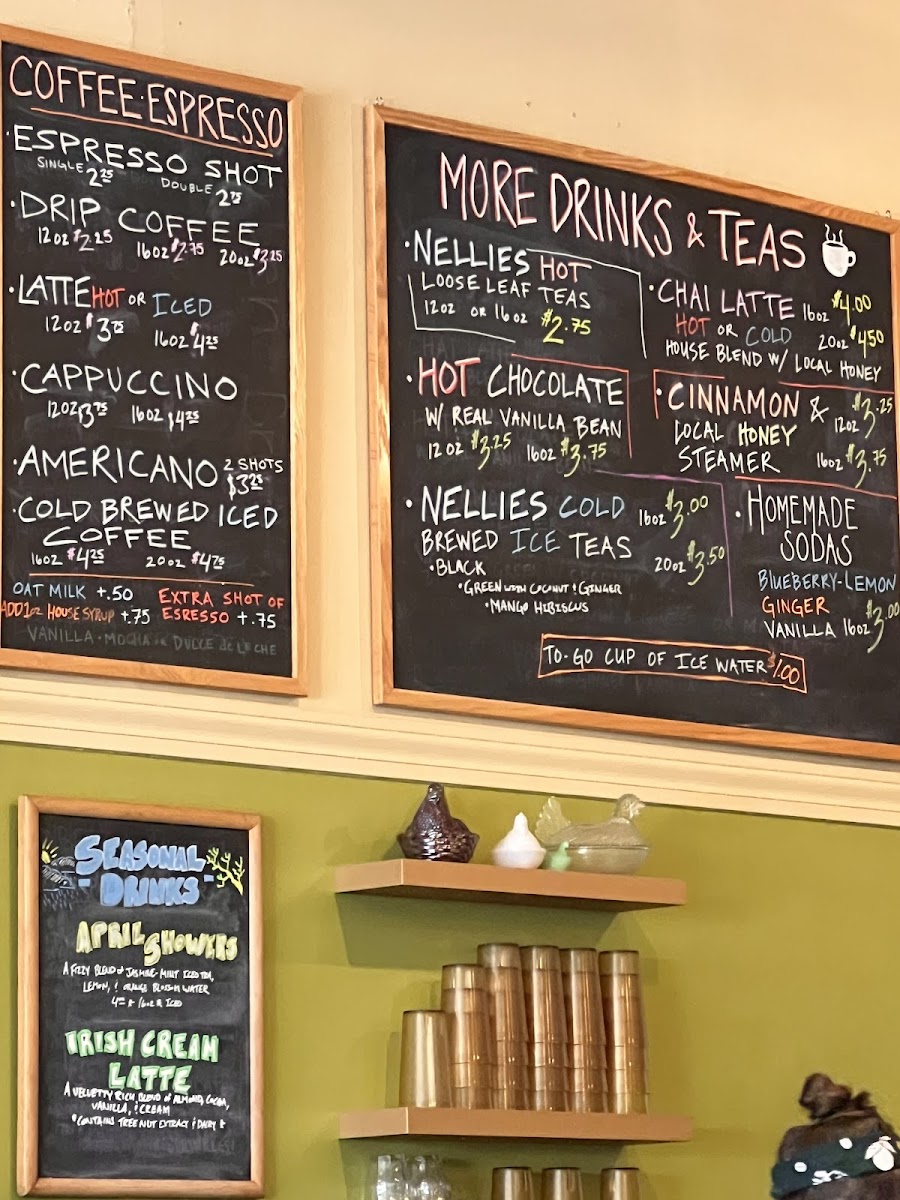 COFFEE·ESPRESSO
·ESPRESSO SHOT
SINGLE 2.25 DOUBLE 2.75
·DRIP COFFEE
12oz $2.25 16oz $2.75 20oz $3.25
·LATTE HOT OR ICED
12oz $3.75 16oz $4.25
·CAPPUCCINO
12oz $3.75 16oz $4.25
·AMERICANO 2 SHOTS
$3.25
·COLD BREWED ICED
COFFEE
16oz $4.25 20oz $4.75
OAT MILK +.50
ADD 1oz HOUSE SYRUP +.75
EXTRA SHOT OF
ESRESSO +.75
VANILLA·MOCHA
DULCE de LECHE
MORE DRINKS & TEAS
·NELLIES HOT
LOOSE LEAF TEAS
12oz OR 16oz $2.75
·HOT CHOCOLATE
W/ REAL VANILLA BEAN
12oz $3.25 16oz $3.75
·NELLIES COLD 16oz $3.00
BREWED ICE TEAS 20oz $3.50
·BLACK
·GREEN WITH COCONUT & GINGER
·MANGO HIBISCUS
·CHAI LATTE 16oz $4.00
HOT OR COLD 20oz $4.50
HOUSE BLEND W/ LOCAL HONEY
·CINNAMON & 12oz $3.25
LOCAL HONEY
STEAMER 16oz $3.75
·HOMEMADE
SODAS
BLUEBERRY-LEMON
GINGER
VANILLA 16oz $3.00
TO-GO CUP OF ICE WATER $1.00
SEASONAL
-DRINKS-
APRIL SHOWERS
A FIZZY BLEND of JASMINE-MINT ICED TEA,
LEMON, & ORANGE BLOSSOM WATER
16oz ICED
IRISH CREAM
LATTE
A VELVETTY RICH BLEND of ALMOND, COCOA,
VANILLA, & CREAM
*CONTAINS TREE NUT EXTRACT & DAIRY*